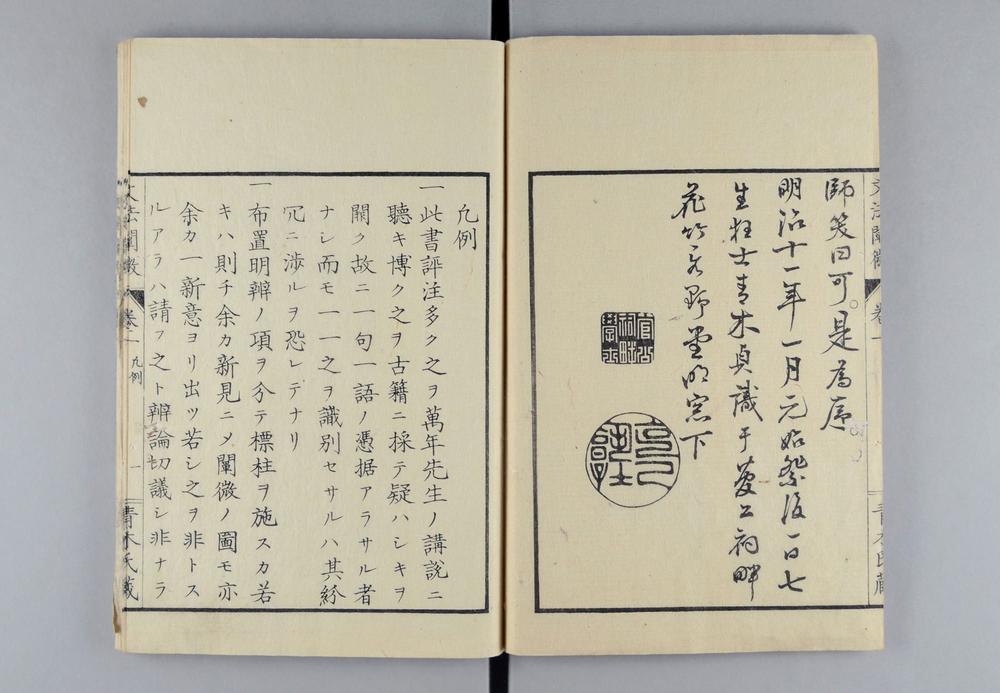 師笑曰可。是為序。
明治十一年一月元始祭後一日七
生狂士青木貞識于菅公祠畔
花竹交野堂明窓下
凡例
一此書評注多ク之ヲ萬年先生ノ講説ニ
聴キ博ク之ヲ古籍ニ採テ疑ハシキヲ
闕ク故ニ一句一語ノ憑据アラサル者
ナシ而モ一一之ヲ識別セサルハ其紛
冗ニ渉ルヲ恐レテナリ
一布置明辨ノ項ヲ分テ標柱ヲ施スカ若
キハ則チ余カ新見ニメ闡微ノ圖モ亦
余カ一新意ヨリ出ツ若シ之ヲ非トス
ルアラハ請フ之ト辨論切議シ非ナラ
文法闡微 卷一 凡例 一 青木氏藏